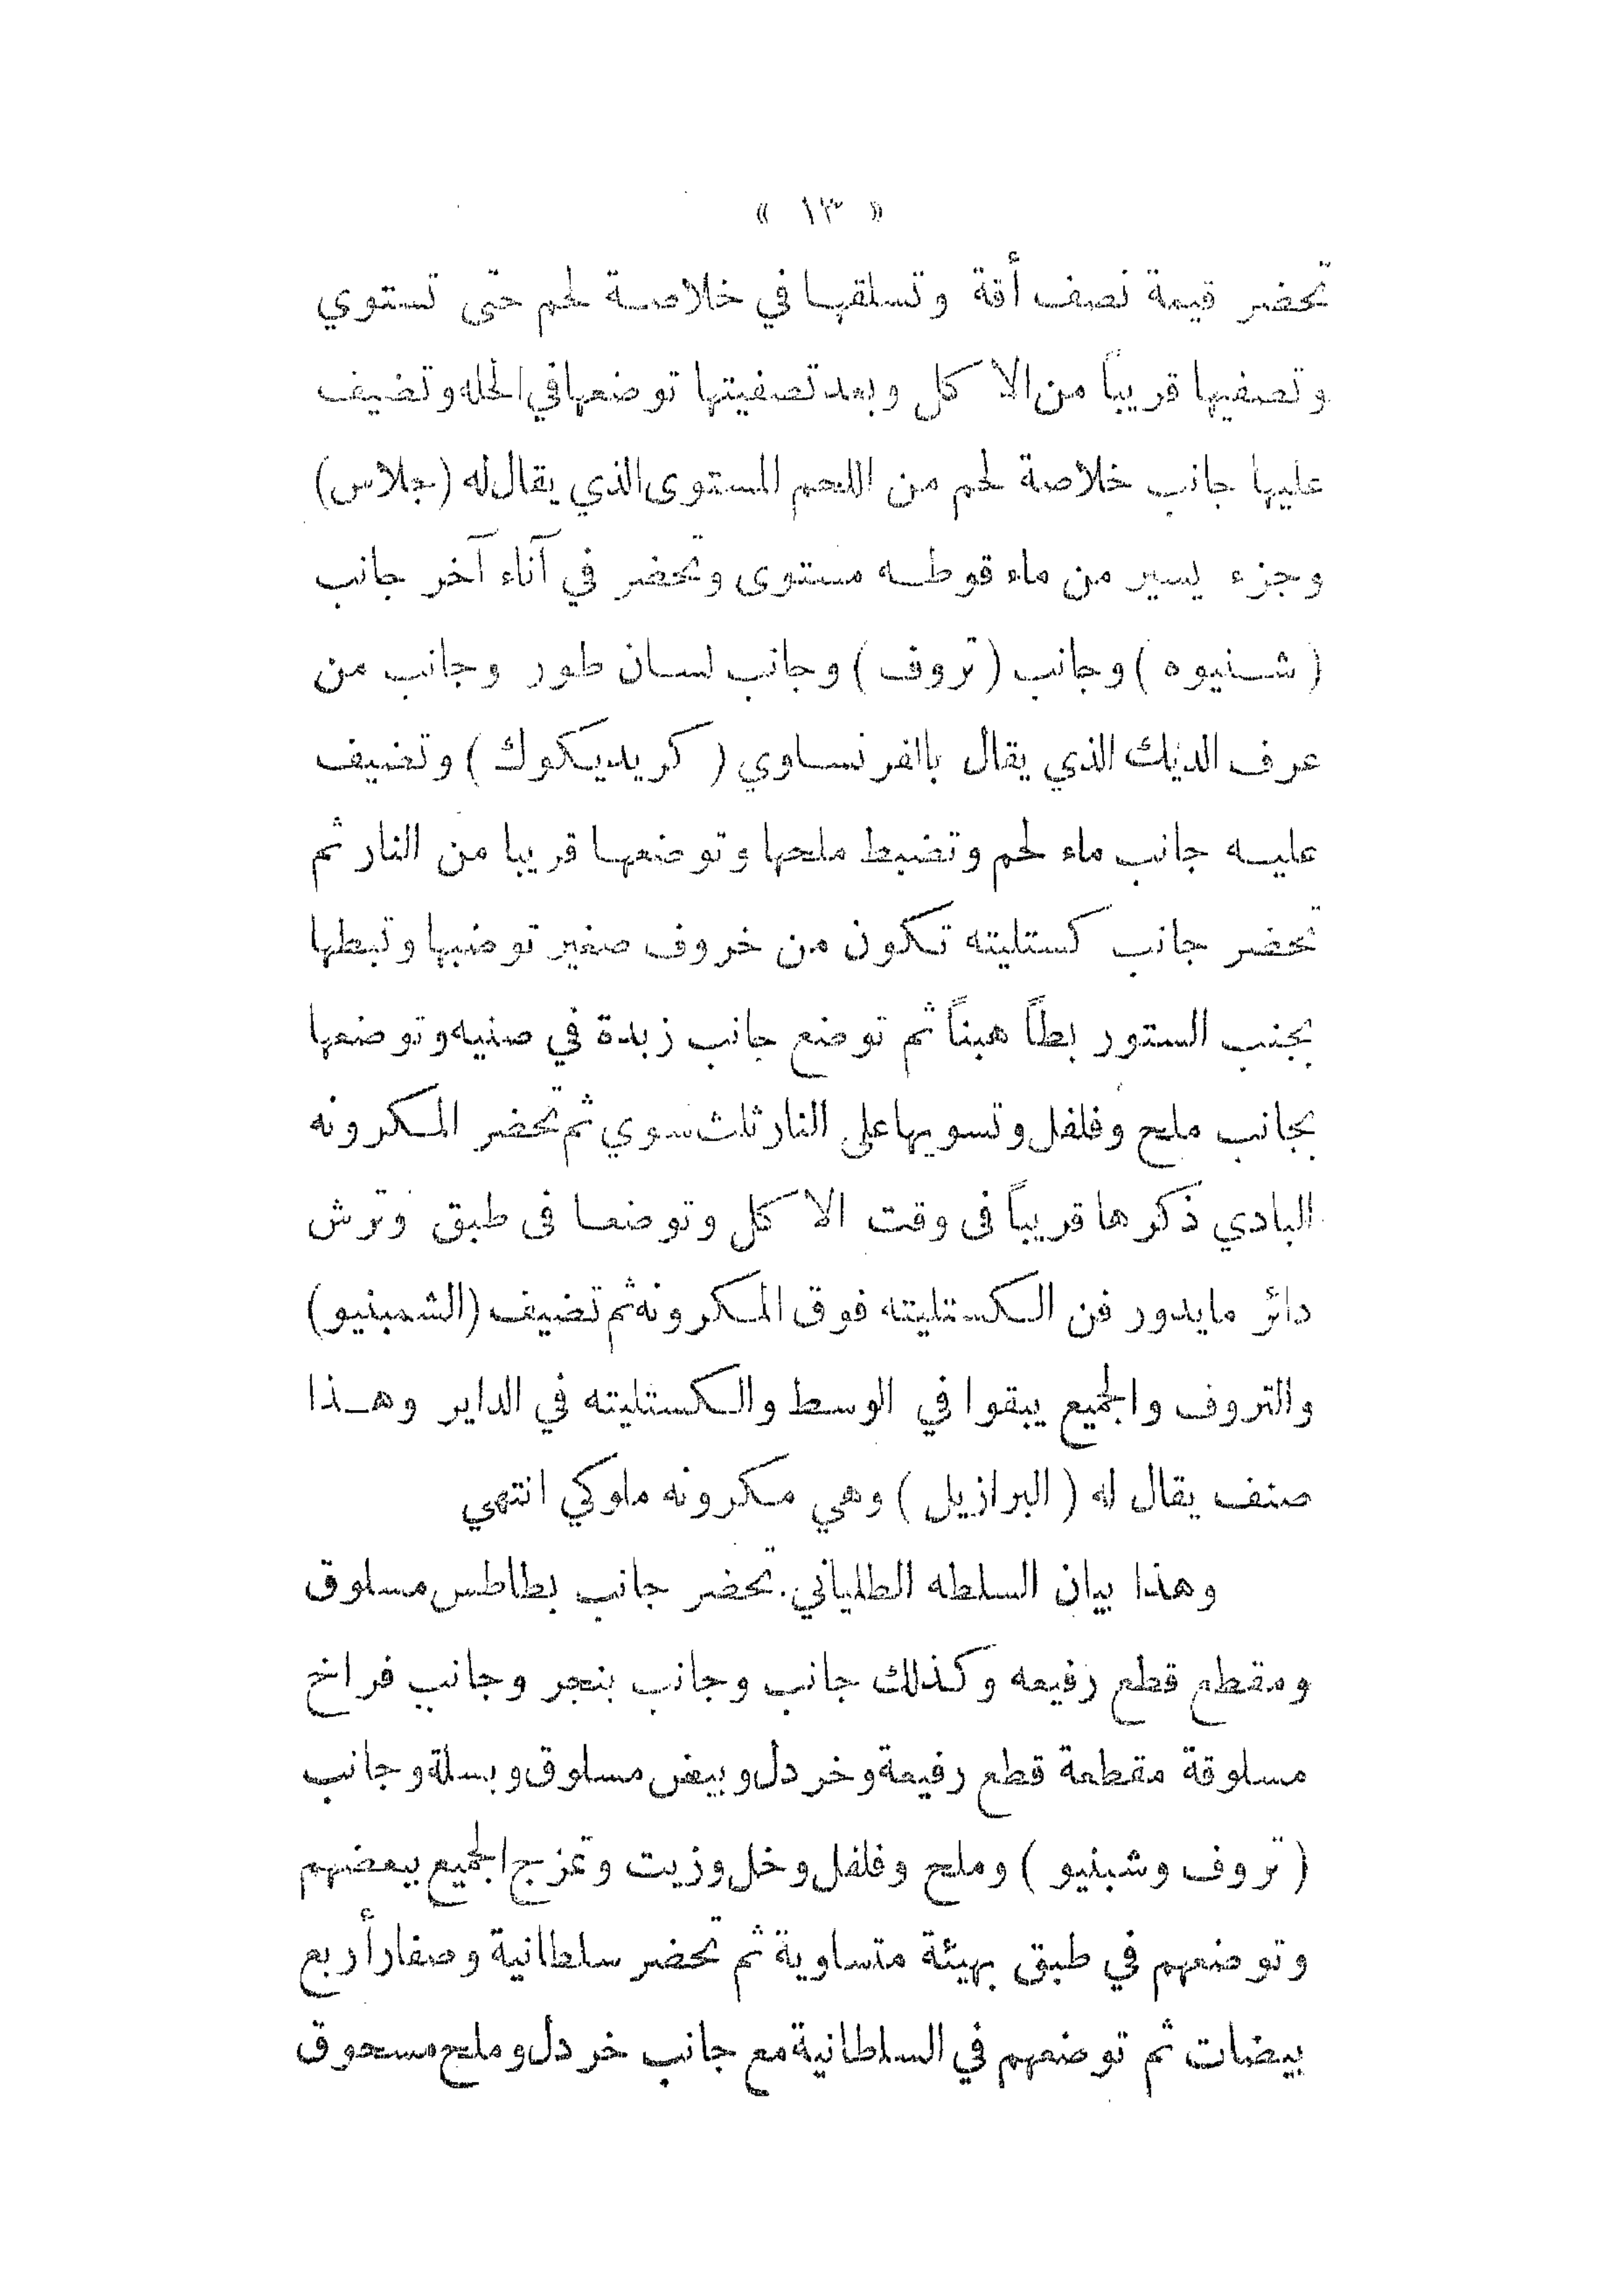 « ١٣ »
تحضر قيمة نصف أقة وتسلقها في خلاصة لحم حتى تستوي
وتصفيها قريباً من الاكل وبعد تصفيتها توضعها في الحله وتضيف
عليها جانب خلاصة لحم من اللحم المستوى الذي يقال له (جلاس)
وجزء يسير من ماء قوطه مستوى وتحضر في آناء آخر جانب
(شنيوه) وجانب (تروف) وجانب لسان طور وجانب من
عرف الديك الذي يقال باالفرنساوي (كريديكوك) وتضيف
عليه جانب ماء لحم وتضبط ملحها وتوضعها قريبا من النار ثم
تحضر جانب كستليته تكون من خروف صغير توضبها وتبطها
بجنب الستور بطاً هيناً ثم توضع جانب زبدة في صنيه وتوضعها
بجانب ملح وفلفل وتسويها على النار ثلث سوي ثم تحضر المكرونه
البادي ذكرها قريباً فى وقت الاكل وتوضعا فى طبق وترش
دائر مايدور فن الكستليته فوق المكرونه ثم تضيف (الشمبنيو)
والتروف والجميع يبقوا في الوسط والكستليته في الداير وهذا
صنف يقال له (البرازيل) وهي مكرونه ملوكي انتهي
وهذا بيان السلطه الطلياني. تحضر جانب بطاطس مسلوق
ومقطع قطع رفيعه وكذلك جانب وجانب بنجر وجانب فراخ
مسلوقة مقطعة قطع رفيعة وخردل وبيض مسلوق وبسلة وجانب
(تروف وشبنيو) وملح وفلفل وخل وزيت وتمزج الجميع ببعضهم
وتوضعهم في طبق بهيئة متساوية ثم تحضر سلطانية وصفار أربع
بيضات ثم توضعهم في السلطانية مع جانب خردل وملح مسحوق